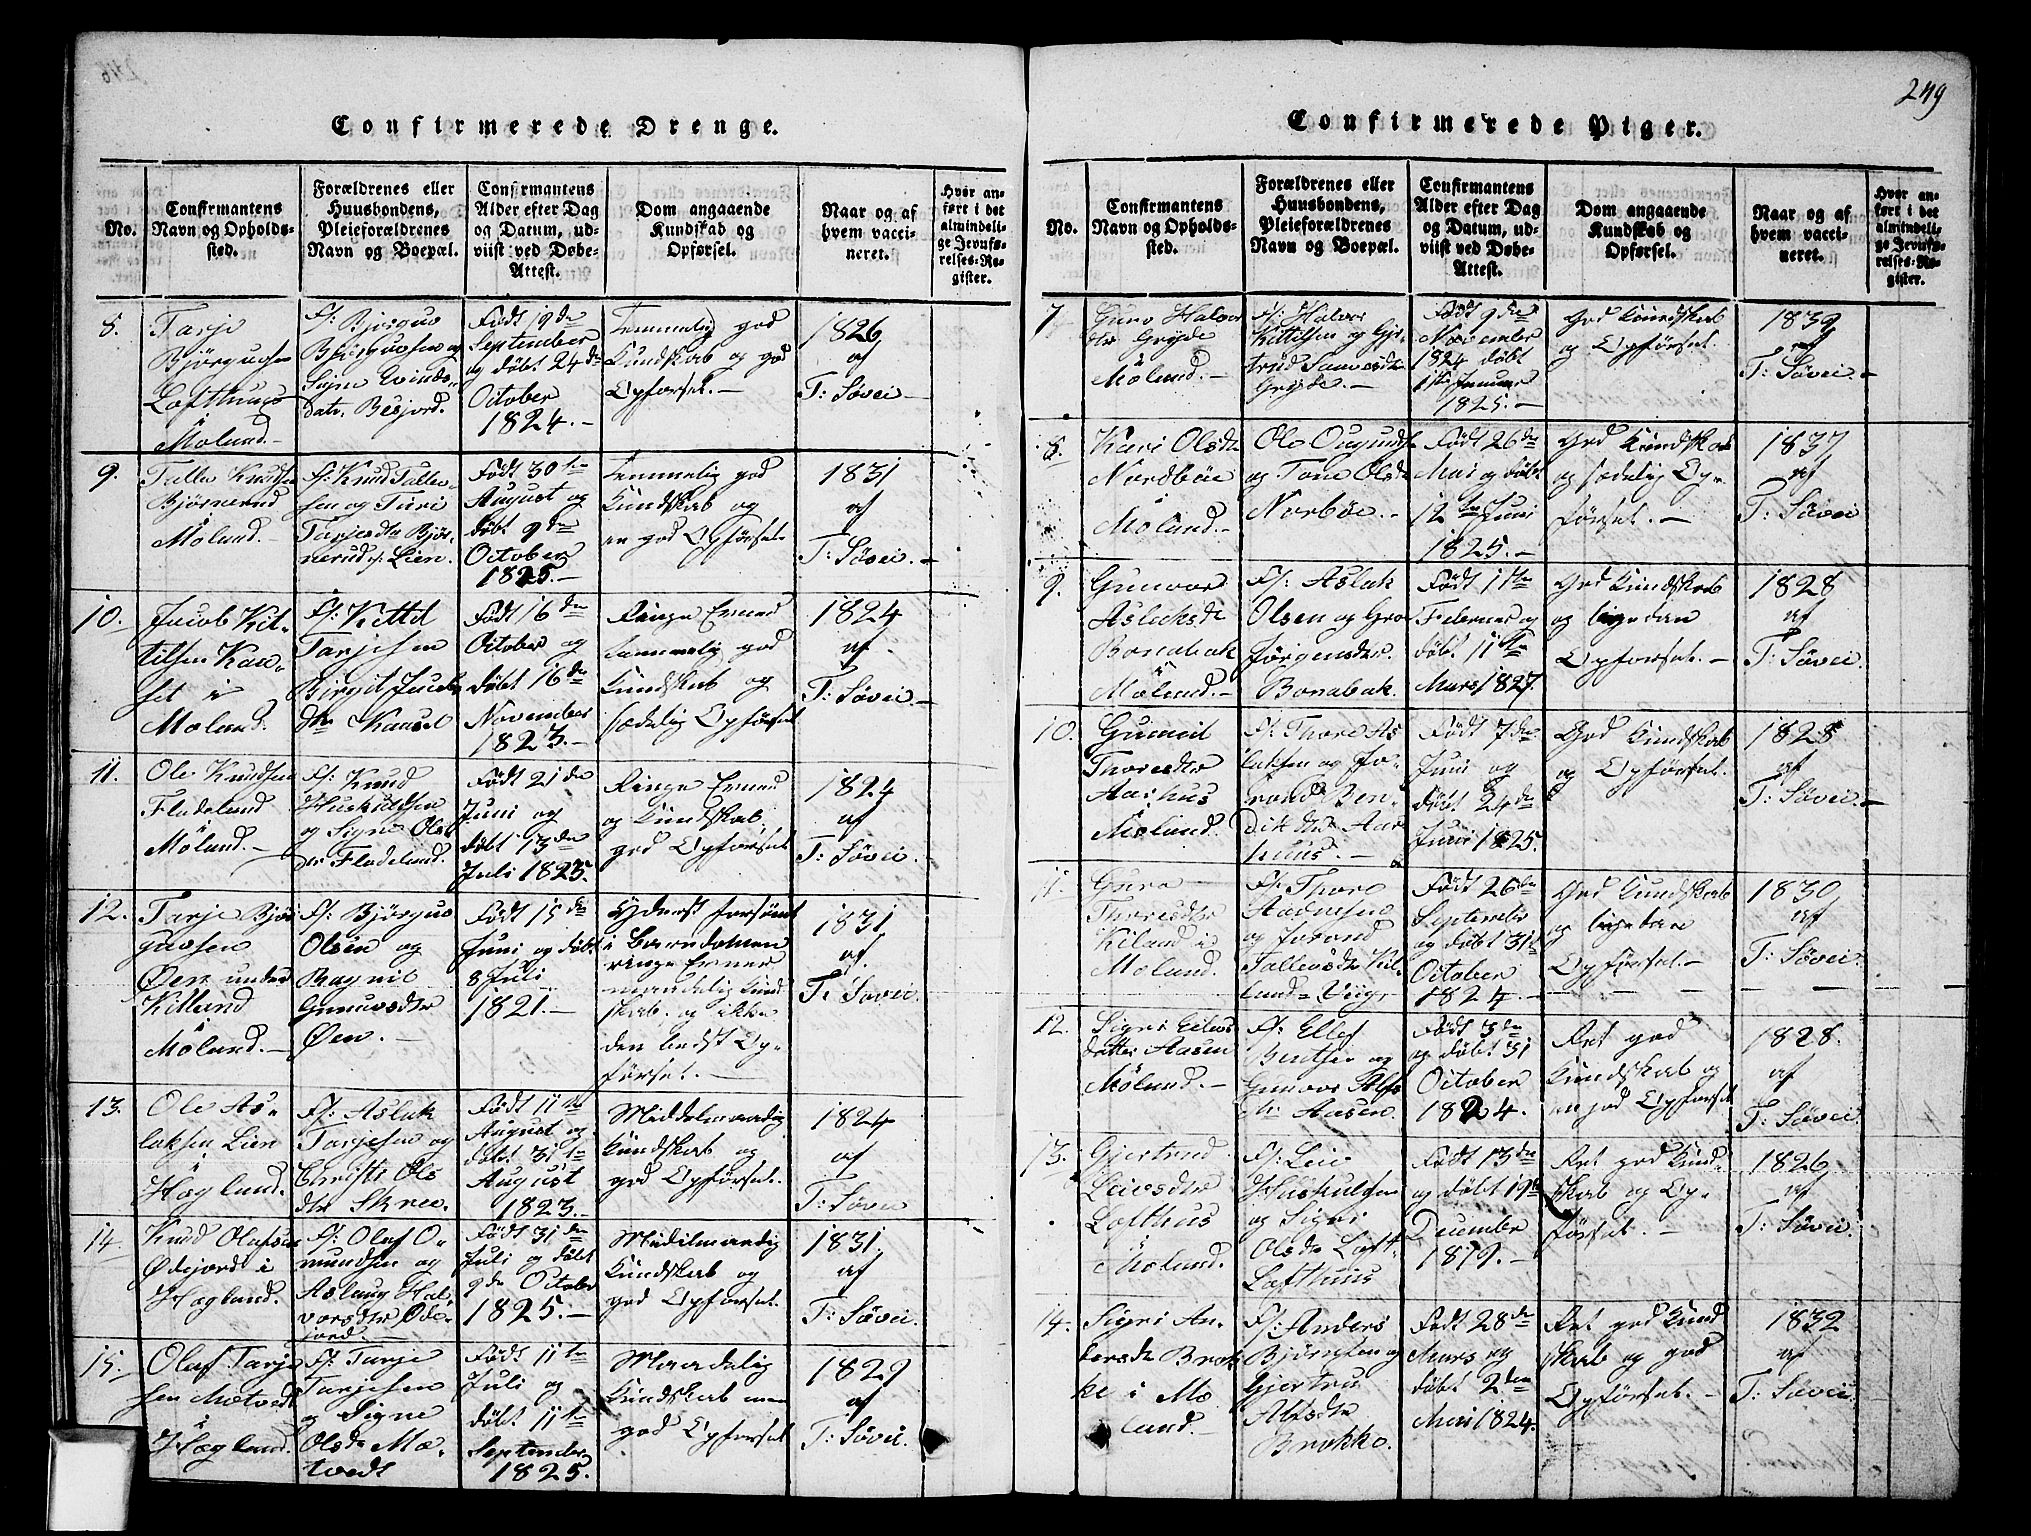 249
Confirmerede Drenge.
No.
Confirmantens
Navn og Opholds-
sted.
Forældrenes eller
Huusbondens,
Pleieforældrenes
Navn og Boepæl.
Confirmantens
Alder efter Dag
og Datum, ud-
viist ved Døbe-
Attest.
Dom angaaende
Kundskab og
Opførsel.
Naar og af
hvem vacci-
neret.
Hvor an-
ført i det
almindeli-
ge Jevnfø-
relses-Re-
gister.
8.
Tarje
Bjørgufsen
Lofthuus
i
Moland.-
F: Bjørguv
Bjørguvsen og
Signe Evinds-
datr. Besjord.
Født 19de
September
og døbt 24de
October
1824.-
Temmelig god
Kundskab og god
Opførsel.-
1826
af
T: Søvei.-
9.
Talle Knudsen
Bjørnerud
Moland.-
F: Knud Talle-
sen og Turi
Tarjesdtr Bjør-
nerud, Lien.
Født 30te
August og
døbt 9de
October
1825.-
Temmelig god
Kundskab og
en god Opførsel
1831
af
T: Søvei.-
10.
Jacob Kit-
tilsen Kaa-
set i
Moland.
F: Kittel
Tarjesen
Birgit Jacobs
dtr Kaaset
Født 16de
October og
døbt 16de
November
1823.-
Ringe Evner
temmelig god
Kundskab og
sædelig Opførsel
1824
af
T: Søvei.-
11.
Ole Knudsen
Fladeland
Moland.-
F: Knud
og Signe Ols
dr Fladeland.
Født 21de
Juni og
døbt 13de
Juli 1823.
Ringe Evner
og Kundskab,
god Opførsel
1824
af
T: Søvei.
12.
Tarje Bjør
guvsen
Øen under
Killand
i
Moland.-
F: Bjørguv
Olsen og
Ragnil
Gunuvsdtr
Øen.-
Født 15de
Juni og døbt
8 Juli
1821.-
Yderst forsømt
i Barndommen
ringe Evner
maadelig Kund
skab og ikke
den bedst Op-
førsel.-
1831
af
T: Søvei.
13.
Ole As-
laksen Lien
i
Hægland.
F: Aslak
Tarjesen og
Christi Ols
dtr Skree.
Født 11te
August og
døbt 31te
August
1823.-
Middelmaadig
Kundskab og
god Opførsel.
1824
af
T: Søvei
14.
Knud Olafsen
Ødejord i
Hægland.
F: Olaf O-
mundsen og
Aslaug Hal-
vorsdtr Øde-
jord.-
Født 31de
Juli og døbt
9de October
1825.-
Middelmaadig
Kundskab og
god Opførsel.
1831
af
T: Søvei.
15.
Olaf Tarje
sen Mætvedt
i
Hægland.
F: Tarje
Tarjesen
og Signe
Olsdr Mæ-
tvedt
Født 11te
Juli og
døbt 11te
September
1825.
Maadelig
Kundskab men
god Opførsel
1829
af
T: Søvei.
Confirmerede Piger.
No.
Confirmantens
Navn og Opholds-
sted.
Forældrenes eller
Huusbondens,
Pleieforældrenes
Navn og Boepæl.
Confirmantens
Alder efter Dag
og Datum, ud-
viist ved Døbe-
Attest.
Dom angaaende
Kundskab og
Opførsel.
Naar og af
hvem vacci-
neret.
Hvor an-
ført i det
almindeli-
ge Jevnfø-
relses-Re-
gister.
7
Guro Halvor
dtr Gryde
i
Moland.-
F: Halvor
Kittilsen og Gjer
trud Saavesdtr
Gryde.-
Født 9de
November
1824 døbt
1ste Januar
1825.-
God Kundskab
og Opførsel.
1839
af
T: Søvei.-
8.
Kari Olsdtr
Nordbøe
i
Moland.-
Ole Ougunds
og Tone Olsdr
Norbøe.-
Født 26de
Mai og døbt
12te Juni
1825.-
God Kundskab
og sædelig Op-
førsel.-
1837
af
T: Søvei
9.
Gunvor
Aslaksdr
Bonabak
i
Moland.-
F: Aslak
Olsen og Gro
Jørgensdtr.
Bonabak.
Født 1ste
Februar og
døbt 11te
Mars 1827.
God Kundskab
og ligedan
Opførsel.-
1828
af
T: Søvei.
10.
Gunnil
Thoresdtr
Aashus
Moland.
F: Thore As
laksen og Jo-
rand Ben-
Født 7de
Juni og
døbt 24de
Juni 1825.
God Kundskab
og Opførsel.
1828
af
T: Søvei.-
11.
Guro
Thoresdtr
Kiland i
Moland.
F: Thore
Aadnesen
og Jorand
Tallevsdtr Kil
land-Viig,
Født 26de
September
og døbt 31te
October
1824.-
God Kundskab
og ligedan
Opførsel.-
1830
af
T: Søvei.
12.
Sigri Eilevs
datter Aasen
Moland.-
F: Ellef
Bentsen og
Gunvor Alfs
dr. Aasen.
Født 3de
og døbt 31
October
1824.
Ret god
Kundskab og
en god Opførsel
1828.
af
T: Søvei
13.
Gjertrud
Leivsdtr
Lofthus
i
Moland.
F: Leiv
og Sigri
Olsdr Loft
Lofthuus
Født 13de
og døbt 19de
December
1819.-
Ret god Kund-
skab og Op-
førsel.-
1826
af
T: Søvei.
14.
Sigri An-
dersdr Brok
ke i Mo
land.-
F: Anders
Bjørnsen og
Gjertru
Alfsdtr
Brokke.
Født 28de
Mars og
døbt 2den
Mai 1824.
Ret god Kund
skab og god
Opførsel.-
1832
af
T: Søvei.